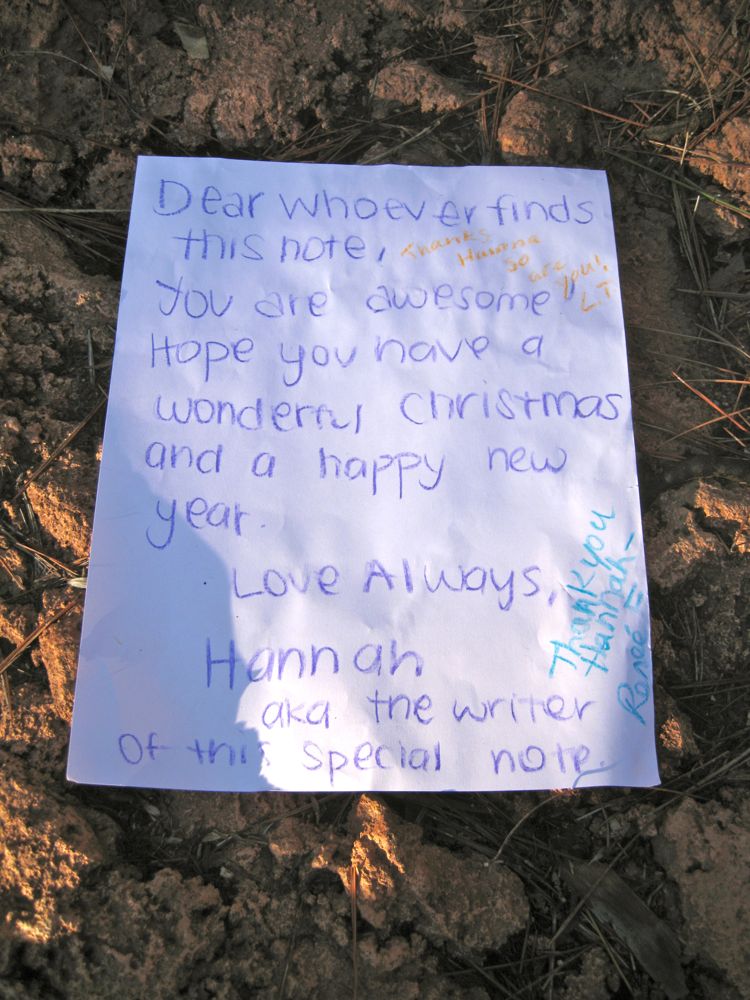 Dear whoever finds
this note,
Thanks
Hannah
so
are
you!
L.T
You are awesome
Hope you have a
wonderful Christmas
and a happy new
year.
Love Always,
Hannah
aka the writer
of this special note.
Thank you
Hannah-
Reneé